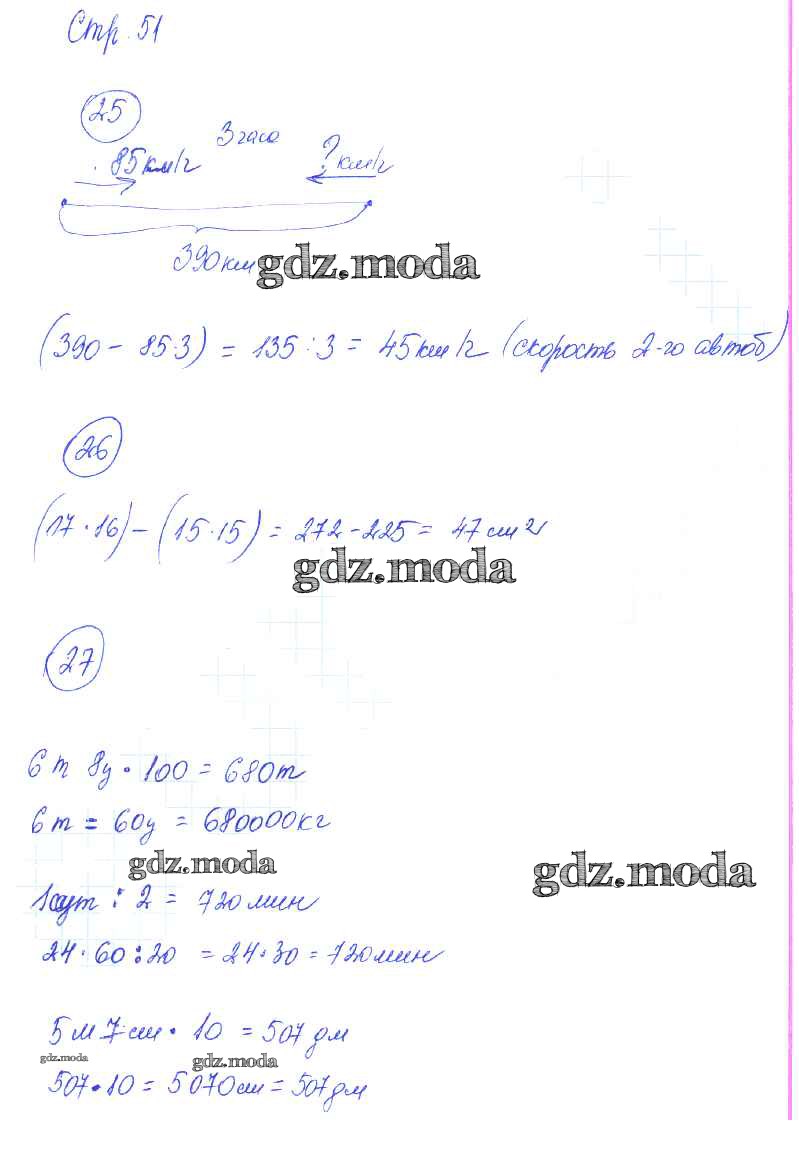 Стр. 51
25
3 часа
85км/г ? км/г
390км
gdz.moda
(390 - 85·3) = 135 : 3 = 45 км/г (скорость 2-го автоб)
26
(17 · 16) - (15·15) = 272 - 225 = 47 см²
gdz.moda
27
6 т 8ц · 100 = 680т
6 т = 60ц = 680000кг
gdz.moda gdz.moda
1сут : 2 = 720 мин
24 · 60 : 20 = 24·30 = 720 мин
5 м 7 см · 10 = 507 дм
gdz.moda gdz.moda
507·10 = 5070см = 507дм